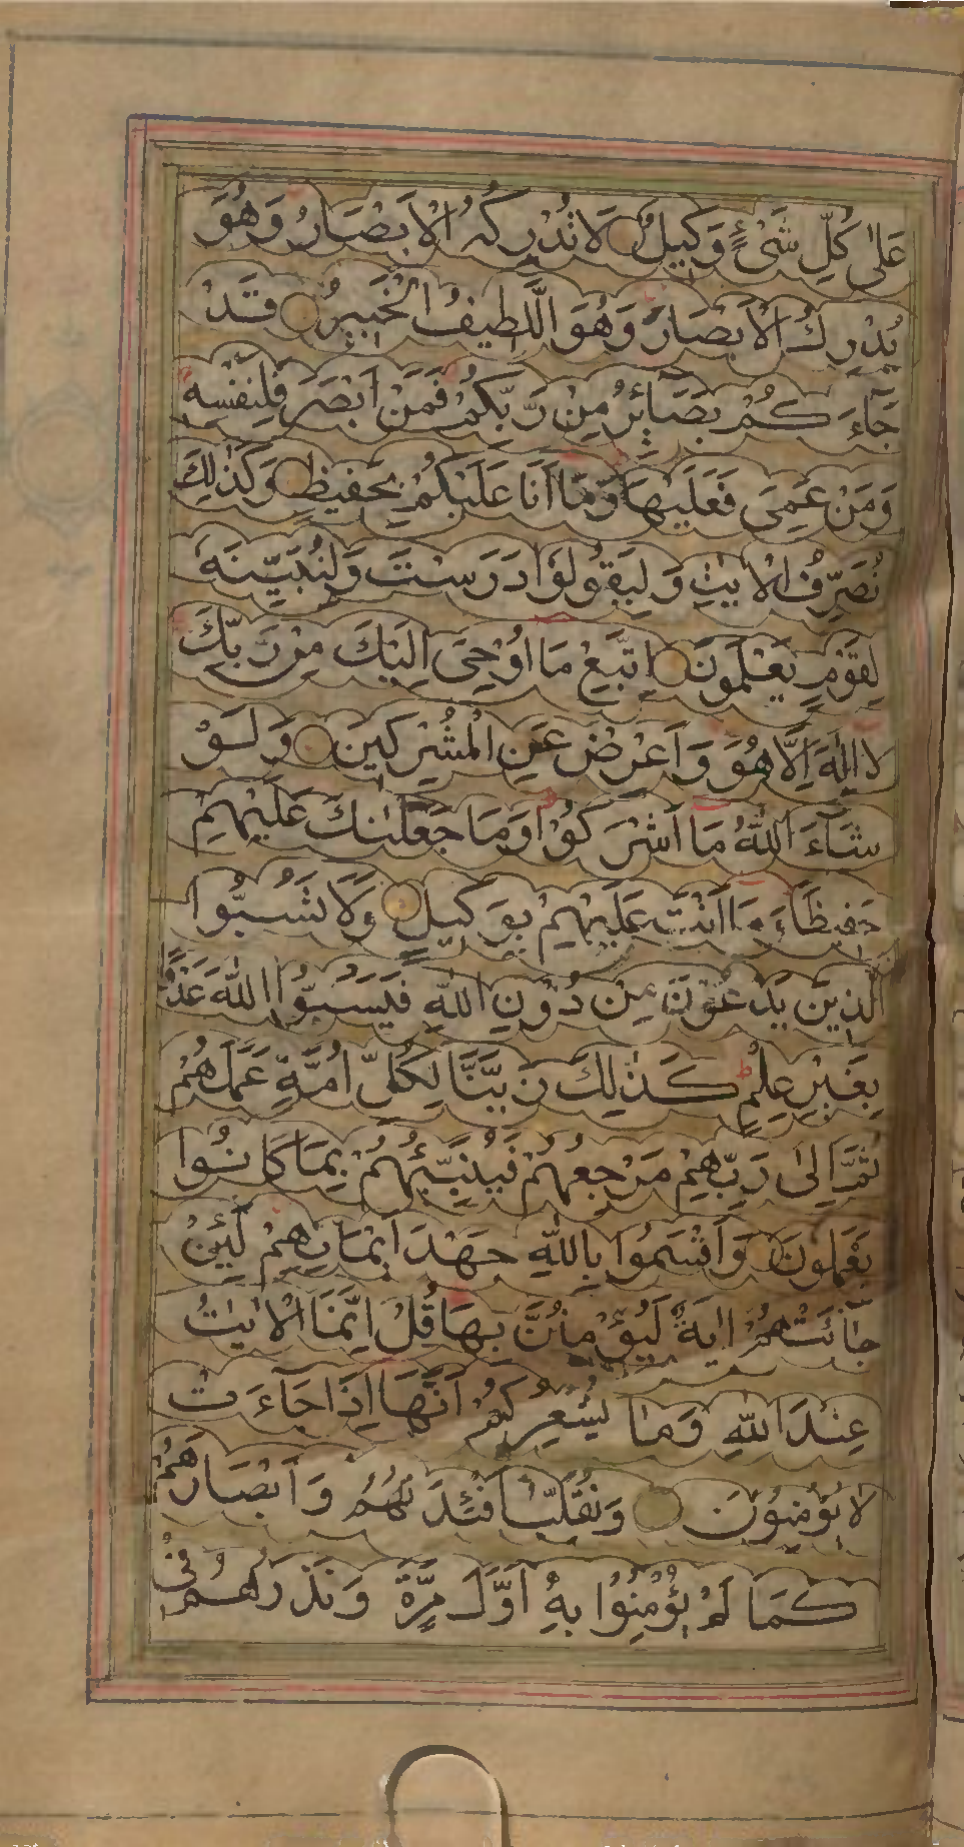 عَلٰى كُلِّ شَىْءٍ وَكِيلٌ لَا تُدْرِكُهُ الْاَبْصَارُ وَهُوَ
يُدْرِكُ الْاَبْصَارَ وَهُوَ اللَّطِيفُ الْخَبِيرُ قَدْ
جَآءَكُمْ بَصَآئِرُ مِنْ رَبِّكُمْ فَمَنْ اَبْصَرَ فَلِنَفْسِهِ
وَمَنْ عَمِىَ فَعَلَيْهَا وَمَا اَنَا عَلَيْكُمْ بِحَفِيظٍ وَكَذٰلِكَ
نُصَرِّفُ الْاٰيٰتِ وَلِيَقُولُوْا دَرَسْتَ وَلِنُبَيِّنَهُ
لِقَوْمٍ يَعْلَمُونَ اِتَّبِعْ مَا اُوْحِىَ اِلَيْكَ مِنْ رَبِّكَ
لَا اِلٰهَ اِلَّا هُوَ وَاَعْرِضْ عَنِ الْمُشْرِكِينَ وَلَوْ
شَآءَ اللّٰهُ مَا اَشْرَكُوْا وَمَا جَعَلْنٰكَ عَلَيْهِمْ
حَفِيظًا وَمَا اَنْتَ عَلَيْهِمْ بِوَكِيلٍ وَلَا تَسُبُّوا
الَّذِينَ يَدْعُوْنَ مِنْ دُوْنِ اللّٰهِ فَيَسُبُّوا اللّٰهَ عَدْوًا
بِغَيْرِ عِلْمٍ كَذٰلِكَ زَيَّنَّا لِكُلِّ اُمَّةٍ عَمَلَهُمْ
ثُمَّ اِلٰى رَبِّهِمْ مَرْجِعُهُمْ فَيُنَبِّئُهُمْ بِمَا كَانُوا
يَعْمَلُونَ وَاَقْسَمُوا بِاللّٰهِ جَهْدَ اَيْمَانِهِمْ لَئِنْ
جَآئَتْهُمْ اٰيَةٌ لَيُؤْمِنُنَّ بِهَا قُلْ اِنَّمَا الْاٰيٰتُ
عِنْدَ اللّٰهِ وَمَا يُشْعِرُكُمْ اَنَّهَا اِذَا جَآءَتْ
لَا يُؤْمِنُونَ وَنُقَلِّبُ اَفْئِدَتَهُمْ وَاَبْصَارَهُمْ
كَمَا لَمْ يُؤْمِنُوا بِهِ اَوَّلَ مَرَّةٍ وَنَذَرُهُمْ فِى